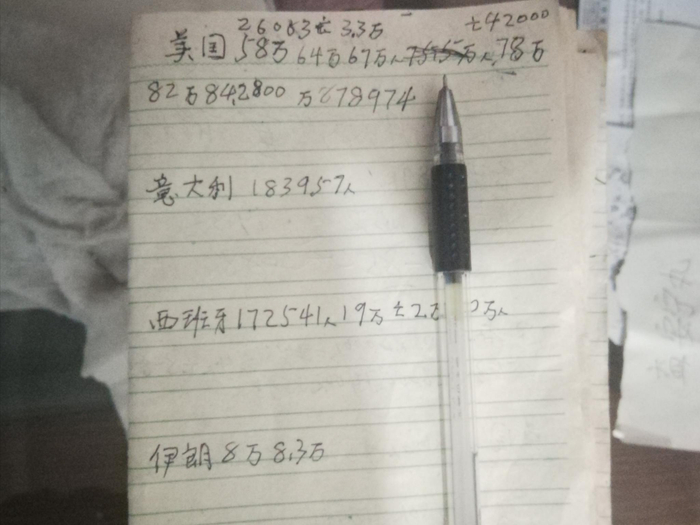 26003亡 3.3万 亡42000
美国 58万 64万 67万人 78万
82万 84,2800 万 878974
意大利 183957人
西班牙 172541人 19万 亡2万 0万人
伊朗 8万 8.3万